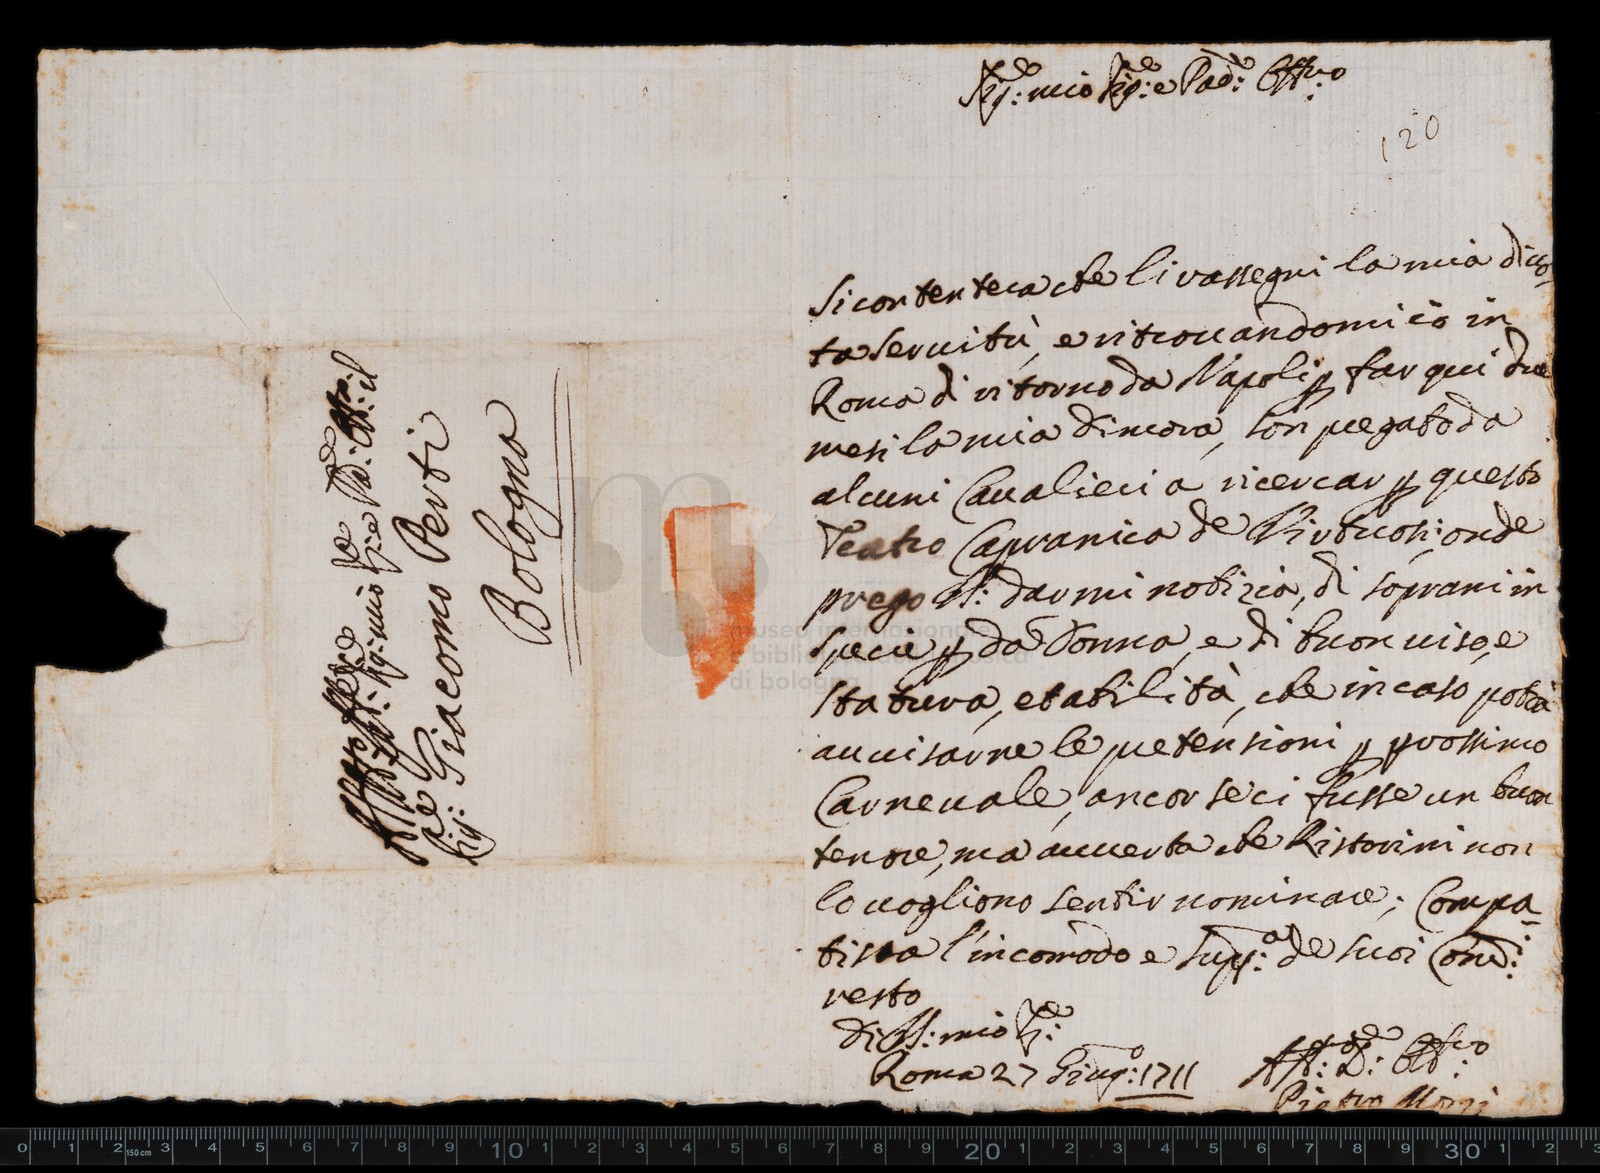 Sig:re mio Sig:re e Pad: Oss:mo
120
Si contenterà che li rassegni la mia divo-
ta servitù, e ritrovandomi io in
Roma di ritorno da Napoli p far qui due
mesi la mia dimora, son pregato da
alcuni Cavalieri a ricercar p questo
Teatro Capranica de Virtuosi, onde
prego VS: darmi notizia, di soprani in
specie p da Donna, e di buon viso, e
statura, et abilità, che in caso potrà
avvisarne le pretensioni p prossimo
Carnevale, ancor se ci fusse un buon
tenore, ma avverta che Ristorini non
lo vogliono sentir nominare; Compa-
tisca l'incomodo e de suoi Com:di
resto
di VS: mio Sig:re
Roma 27 Giug:o 1711
Aff:mo D: Obb:mo
Pietro Mozzi
Sig: mio Sig:re e Pad: Oss: il
Sig:re Giacomo Perti
Bologna
museo internazionale
e biblioteca della musica
di bologna
0 1 2 3 4 5 6 7 8 9 10 1 2 3 4 5 6 7 8 9 20 1 2 3 4 5 6 7 8 9 30 1 2 3
150 cm